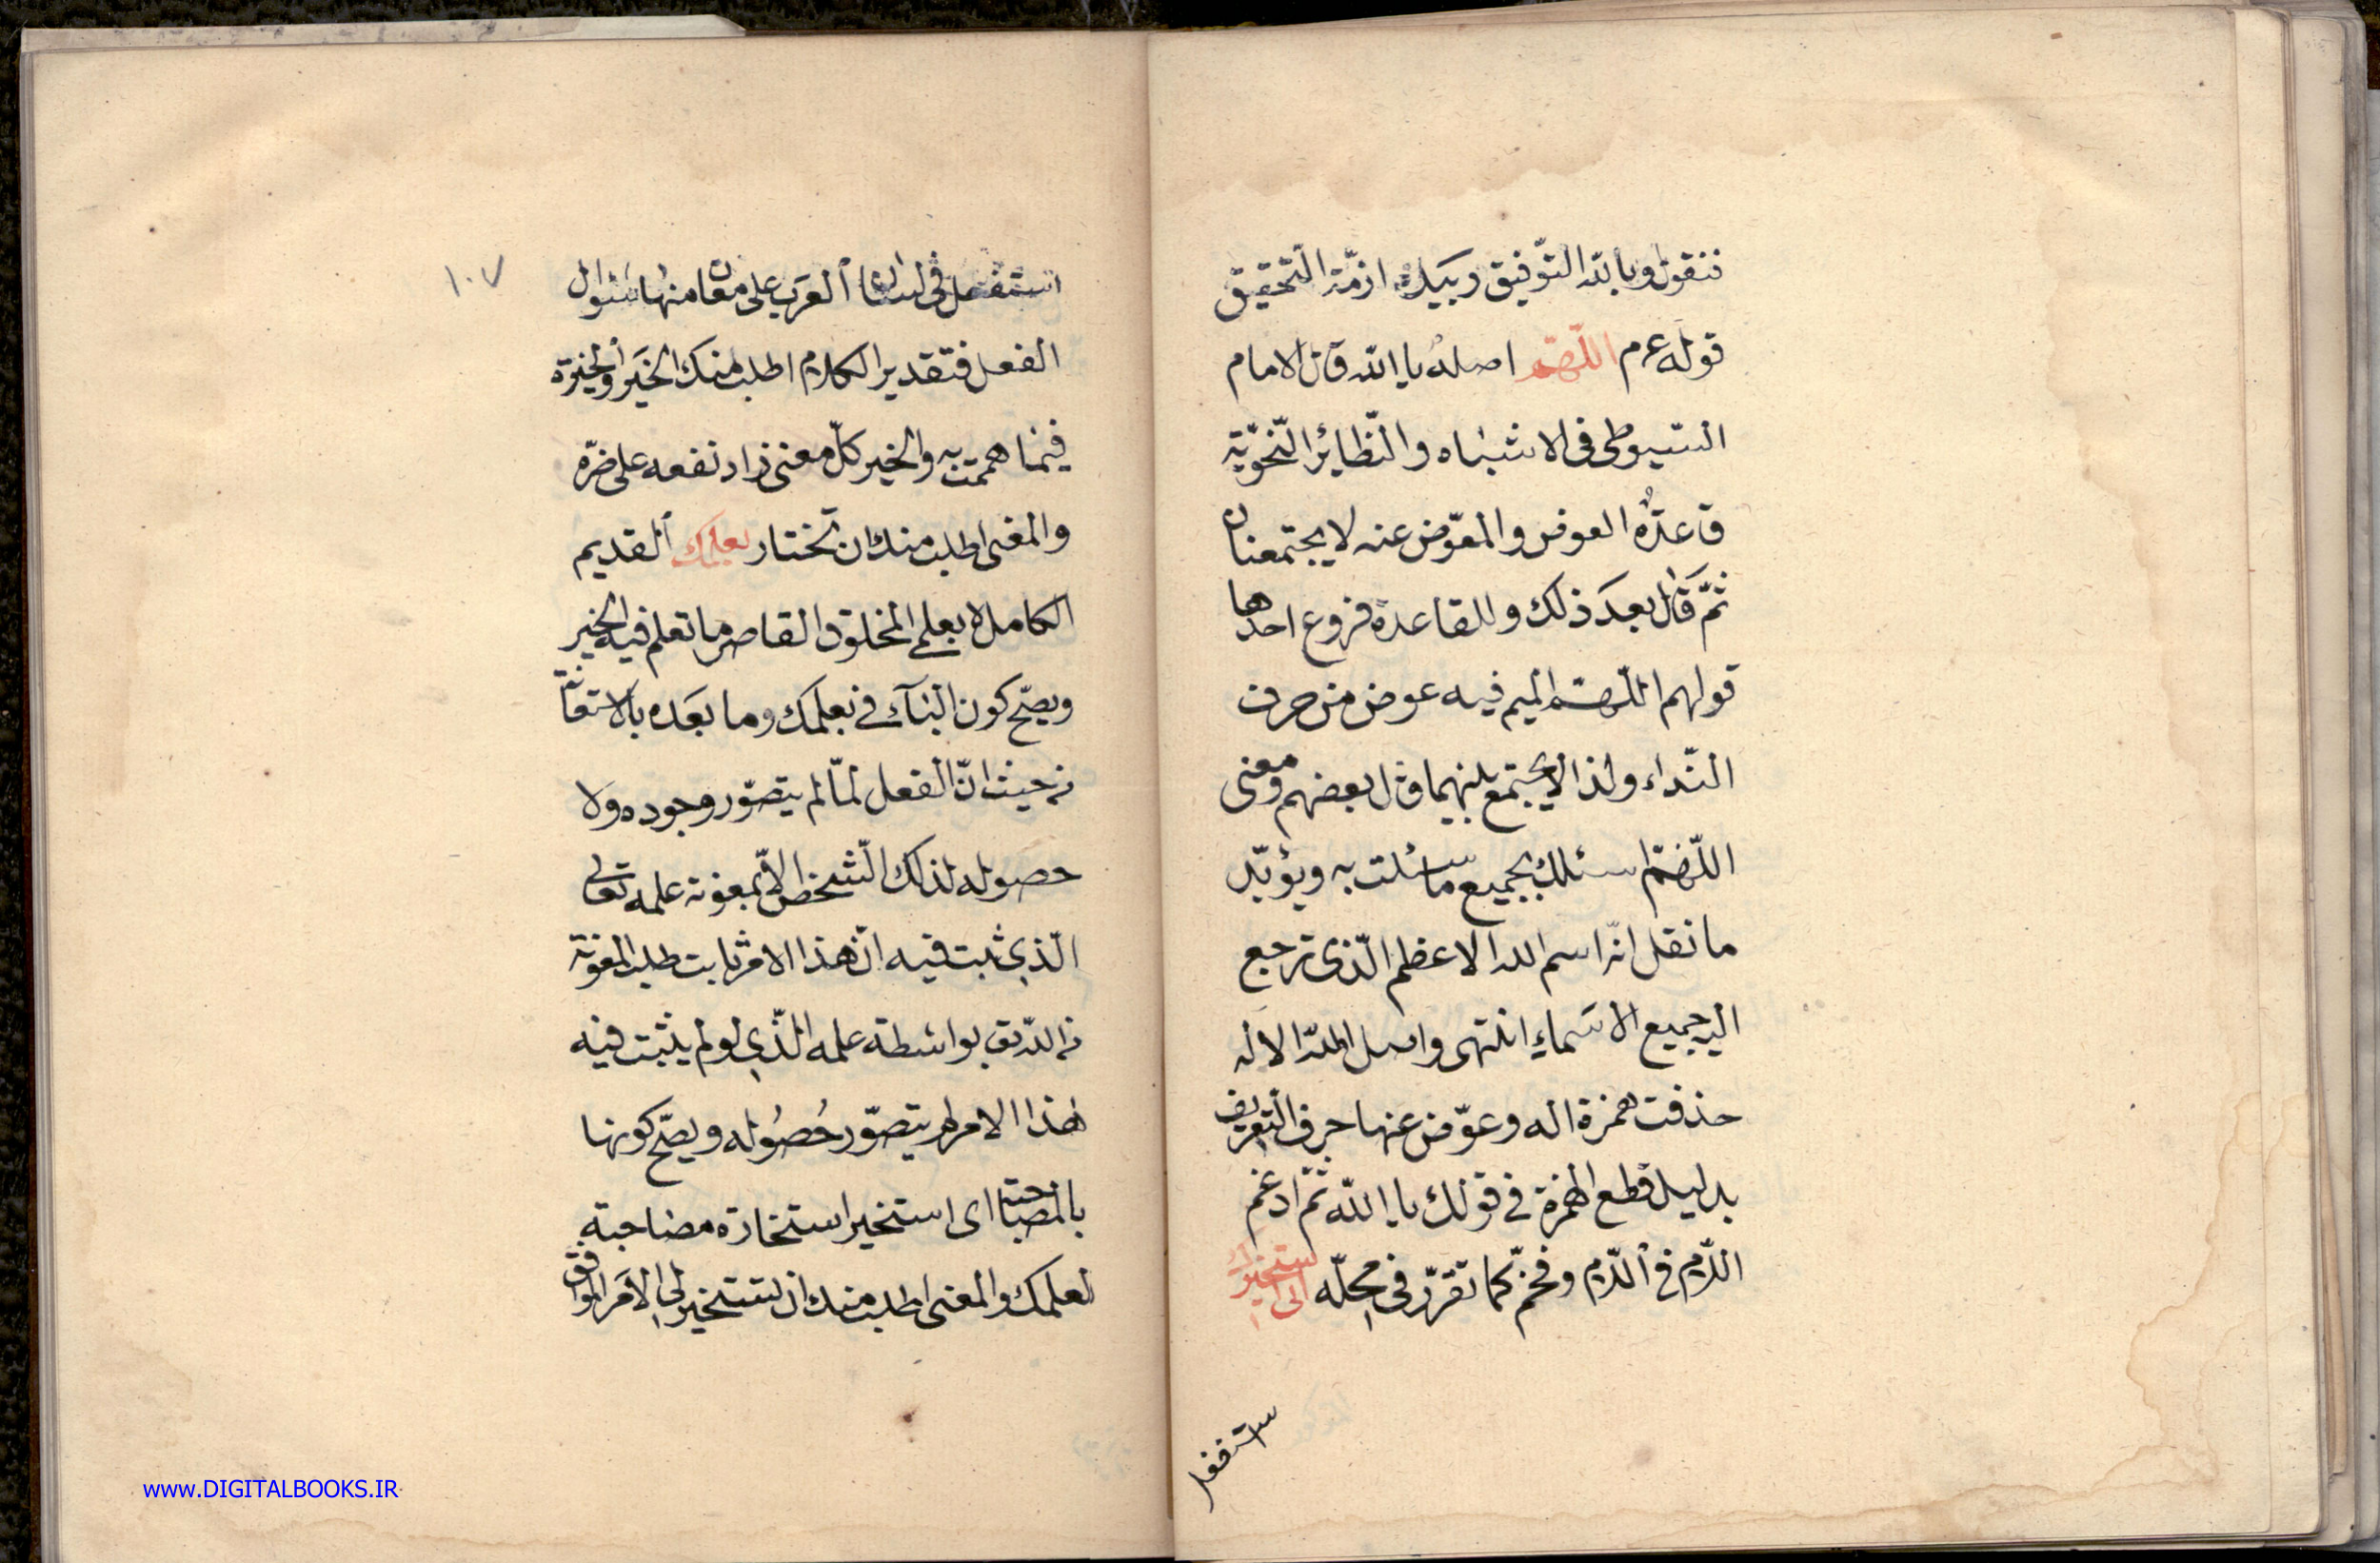 فنقول وبالله التّوفيق وبيده ازمّة التّحقيق
قوله عم اللّهمّ اصله يا الله قال الامام
السّيوطي في الاشباه والنّظائر النّحويّة
قاعدة العوض والمعوّض عنه لا يجتمعان
ثمّ قال بعد ذلك وللقاعدة فروع احدها
قولهم اللّهمّ الميم فيه عوض من حرف
النّداء ولذا لا يجتمع بينهما وقال بعضهم ومعنى
اللّهمّ اسئلك بجميع ما سئلت به ويؤيّد
ما نقل انّه اسم الله الاعظم الّذى ترجع
اليه جميع الاسماء انتهى واصل الله الاله
حذفت همزة اله وعوّض عنها حرف التعريف
بدليل قطع الهمزة في قولك يا الله ثمّ ادغم
اللّام في اللّام وفخّم كما تقرّر في محلّه انى استخيرك
استفعل
١٠٧
استفعل في لسان العرب على معان منها سؤال
الفعل فتقدير الكلام اطلب منك الخير والخيرة
فيما هممت به والخير كلّ معنى زاد نفعه على ضرّه
والمعنى اطلب منك ان تختار بعلمك القديم
الكامل لا بعلمي المخلوق القاصر ما تعلم فيه الخير
ويصحّ كون الباء في بعلمك وما بعده بالاستعانة
من حيث انّ الفعل لمّا لم يتصوّر وجوده ولا
حصوله لذلك الشخص الّا بمعونة علمه تعالى
الّذي ثبت فيه انّ هذا الامر ثابت طلب المعونة
من الله تع بواسطة علمه الّذي لو لم يثبت فيه
هذا الامر لم يتصوّر حصوله ويصحّ كونها
بالمصاحبة اى استخير استخارة مصاحبة
لعلمك والمعنى اطلب منك ان تستخير لي الامر الموافق
www.DIGITALBOOKS.IR